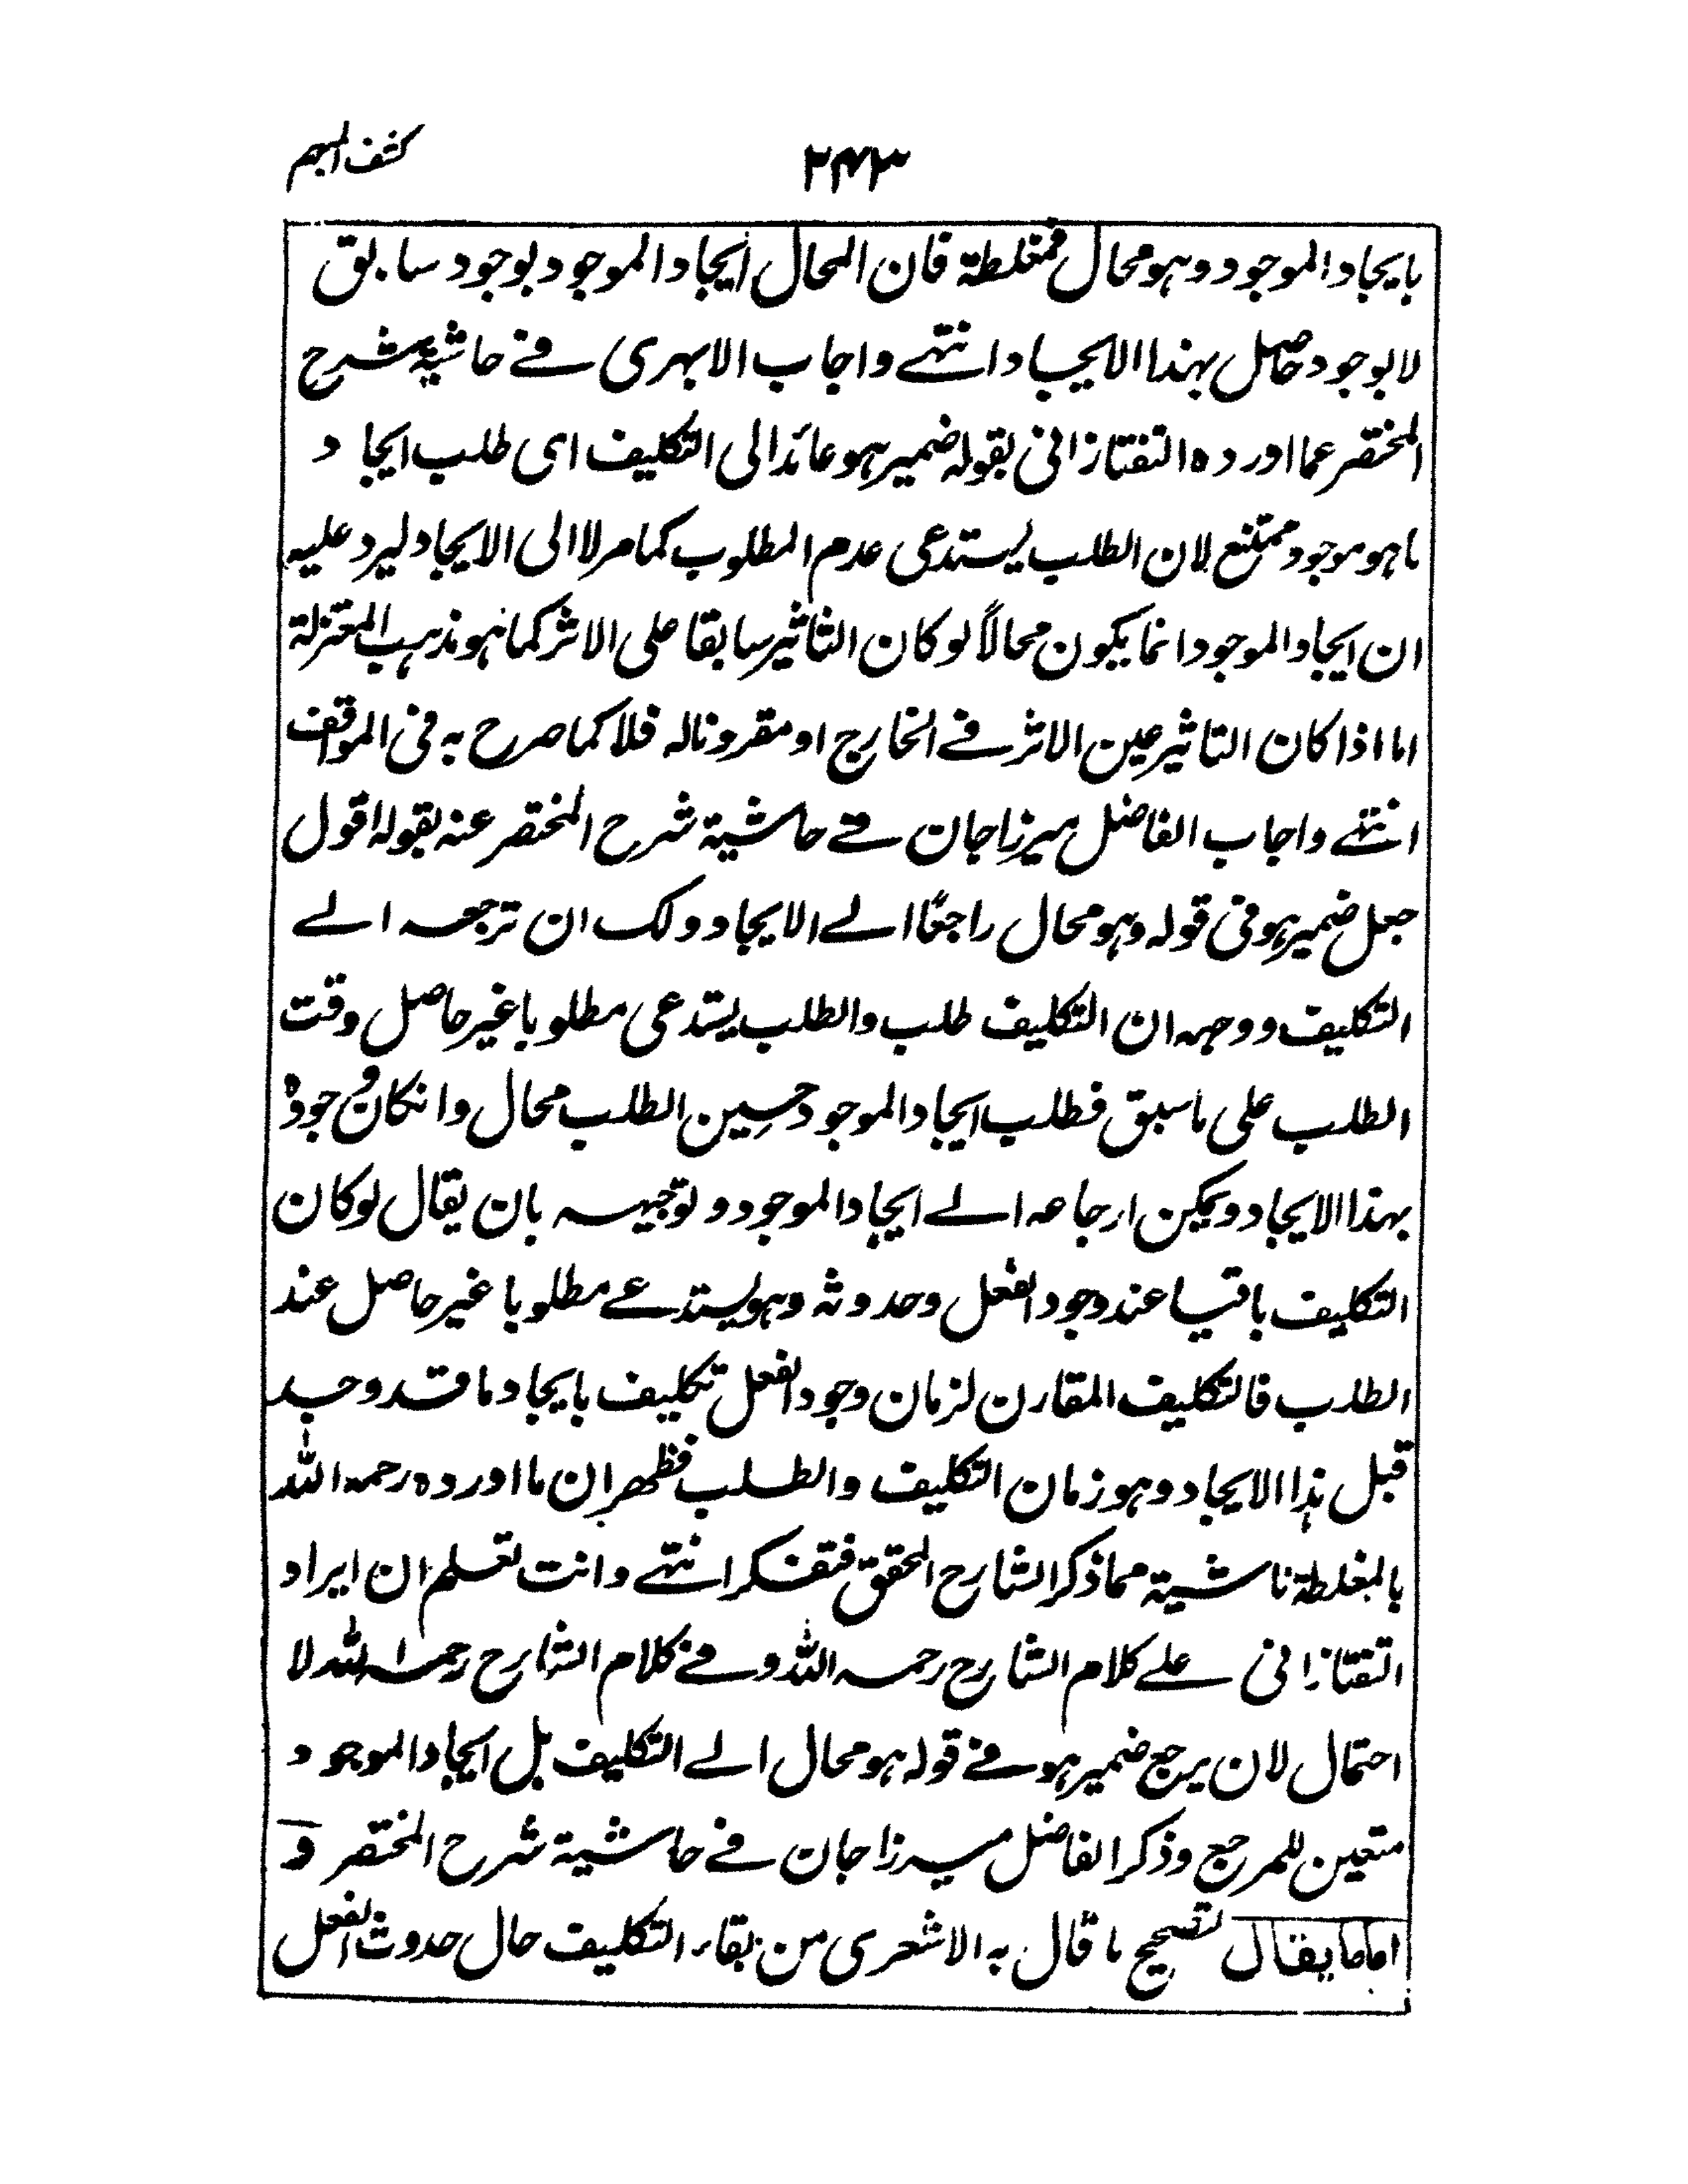 كشف المبهم
٢٤٣
بايجاد الموجود وهو محال فمغلطة فان المحال ايجاد الموجود بوجود سابق
لا بوجود حاصل بهذا الايجاد انتهے واجاب الابهری فے حاشية شرح
المختصر عما اورده التفتازانی بقوله ضمير هو عائد الی التكليف ای طلب ايجاد
ما هو موجود ممتنع لان الطلب يستدعی عدم المطلوب كما مر لا الی الايجاد ليرد عليه
ان ايجاد الموجود انما يكون محالاً لو كان التاثير سابقا علی الاثر كما هو مذهب المعتزلة
اما اذا كان التاثير عين الاثر فے الخارج او مقرونا له فلا كما صرح به فی المواقف
انتهے واجاب الفاضل ميرزا جان فے حاشية شرح المختصر عنه بقوله اقول
جعل ضمير هو فی قوله وهو محال راجعًا الے الايجاد ولك ان ترجعه الے
التكليف ووجهه ان التكليف طلب والطلب يستدعی مطلوبا غير حاصل وقت
الطلب علی ما سبق فطلب ايجاد الموجود حين الطلب محال وانكان وجوده
بهذا الايجاد ويمكن ارجاعه الے ايجاد الموجود وتوجيهه بان يقال لو كان
التكليف باقيا عند وجود الفعل وحدوثه وهو يستدعے مطلوبا غير حاصل عند
الطلب فالتكليف المقارن لزمان وجود الفعل تكليف بايجاد ما قد وجد
قبل هذا الايجاد وهو زمان التكليف والطلب فظهر ان ما اورده رحمه الله
بالمغلطة ناشية مما ذكر الشارح المحقق فتفكر انتهے وانت تعلم ان ايراد
التفتازانی علے كلام الشارح رحمه الله وفے كلام الشارح رحمه الله لا
احتمال لان يرجع ضمير هو فے قوله هو محال الے التكليف بل ايجاد الموجود
متعين للمرجع وذكر الفاضل ميرزا جان فے حاشية شرح المختصر و
اما ما يقال لتصحيح ما قال به الاشعری من بقاء التكليف حال حدوث الفعل